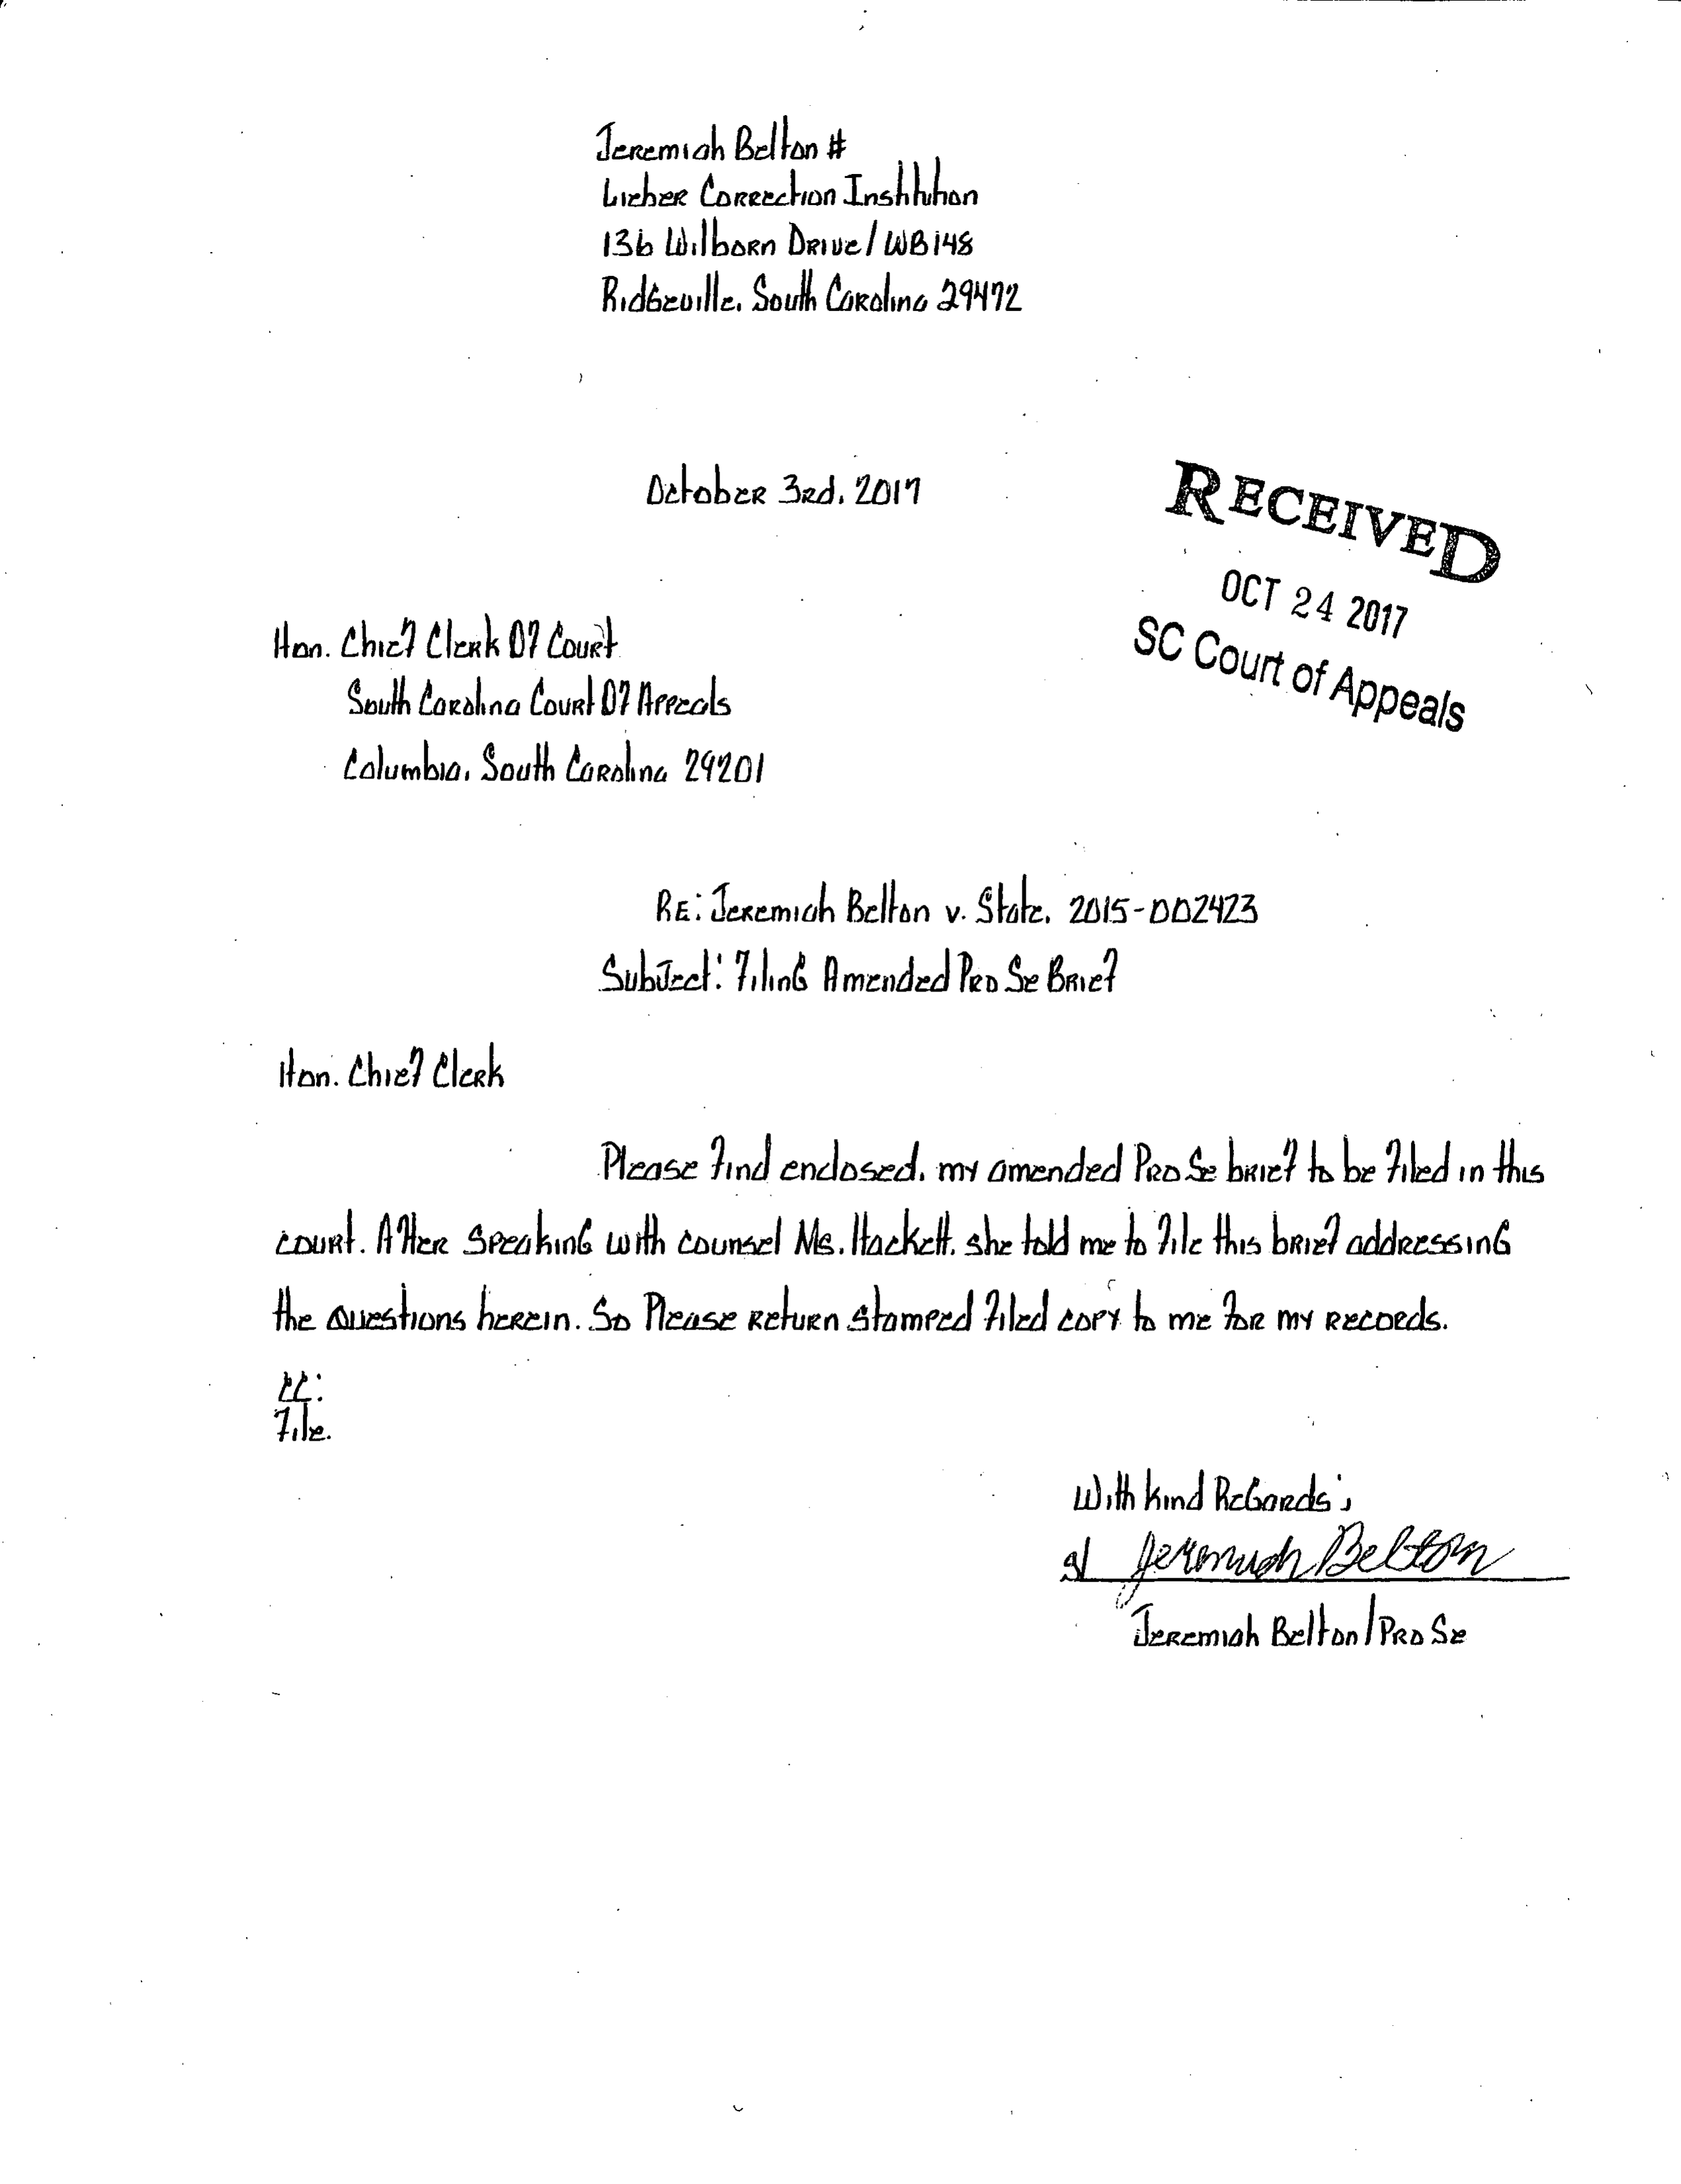 Jeremiah Belton #
Lieber Correction Institution
136 Wilborn Drive/WB148
Ridgeville, South Carolina 29472
October 3rd, 2017
RECEIVED
OCT 24 2017
SC Court of Appeals
Hon. Chief Clerk Of Court
South Carolina Court Of Appeals
Columbia, South Carolina 29201
RE: Jeremiah Belton v. State, 2015-002423
Subject: Filing Amended Pro Se Brief
Hon. Chief Clerk
Please find enclosed, my amended Pro Se brief to be filed in this
court. After speaking with counsel Ms. Hackett, she told me to file this brief addressing
the questions herein. So Please return stamped filed copy to me for my records.
CC:
File.
With Kind Regards;
s/ Jeremiah Belton
Jeremiah Belton/Pro Se